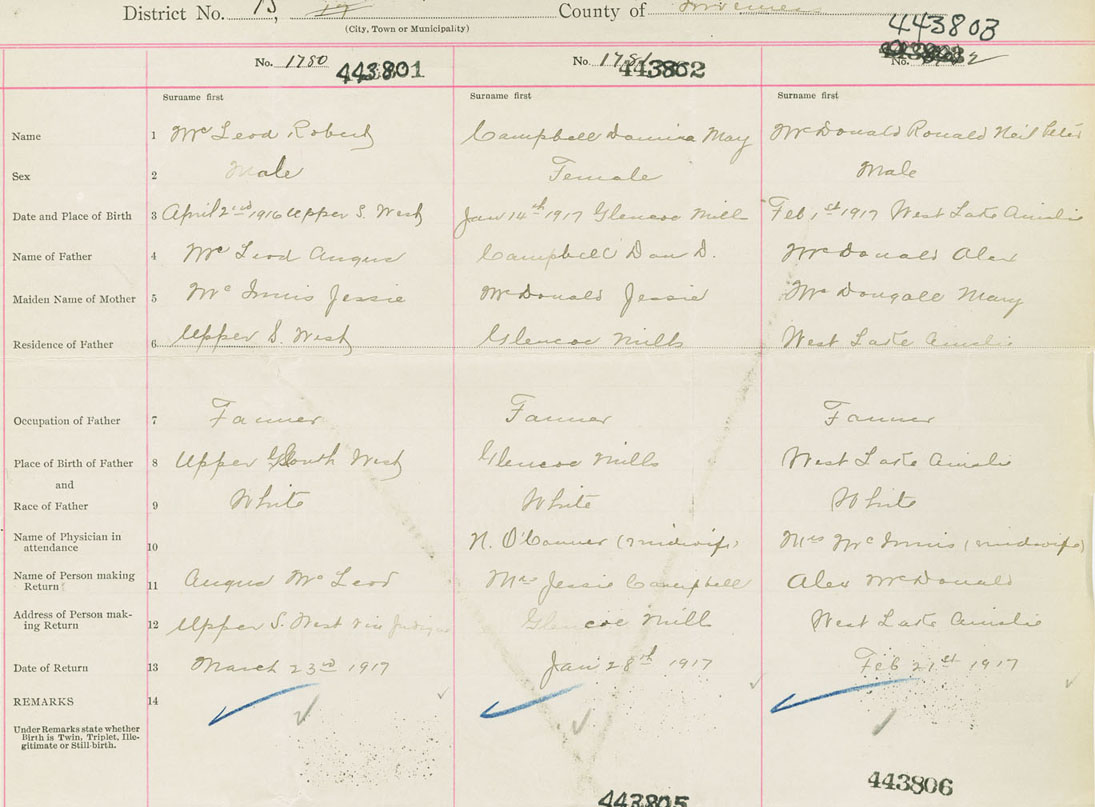 District No. 15, County of Inverness
(City, Town or Municipality)
443803
No. 1780 443801 No. 1781 443802 No.
Surname first Surname first Surname first
Name 1 McLeod Robert Campbell May McDonald Ronald Neil Peter
Sex 2 Male Female Male
Date and Place of Birth 3 April 2nd 1916 Upper S. West Jan 14th 1917 Glencoe Mills Feb 1st 1917 West Lake Ainslie
Name of Father 4 McLeod Angus Campbell Dan D. McDonald Alex
Maiden Name of Mother 5 McInnis Jessie McDonald Jessie McDougall Mary
Residence of Father 6 Upper S. West Glencoe Mills West Lake Ainslie
Occupation of Father 7 Farmer Farmer Farmer
Place of Birth of Father 8 Upper South West Glencoe Mills West Lake Ainslie
and
Race of Father 9 White White White
Name of Physician in
attendance 10 N. O'Connor (midwife) Mrs McInnis (midwife)
Name of Person making
Return 11 Angus McLeod Mrs Jessie Campbell Alex McDonald
Address of Person mak-
ing Return 12 Upper S. West Via Judique Glencoe Mills West Lake Ainslie
Date of Return 13 March 23rd 1917 Jan 28th 1917 Feb 21st 1917
REMARKS 14
Under Remarks state whether
Birth is Twin, Triplet, Ille-
gitimate or Still-birth.
443805 443806